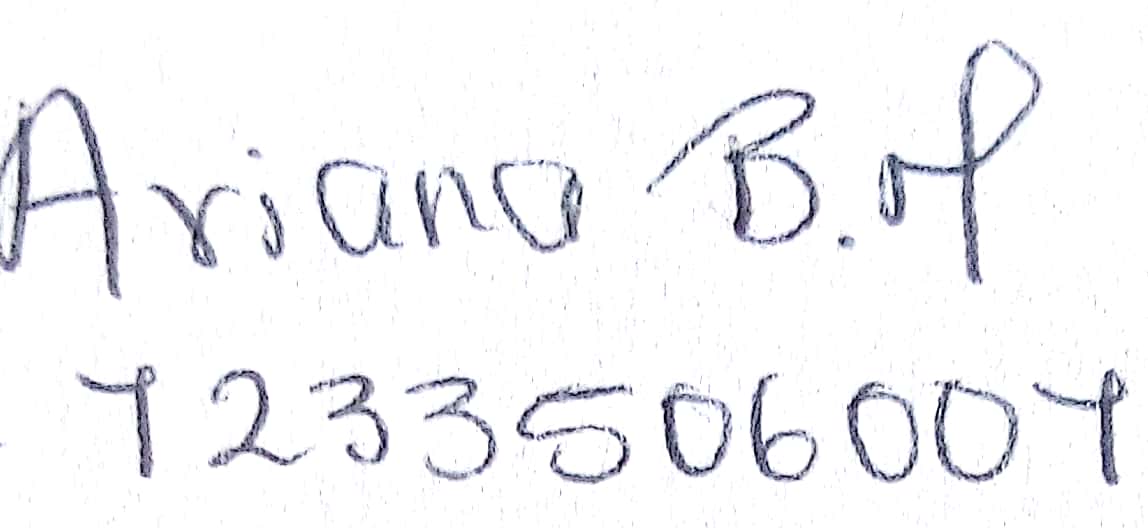 Ariana B.M
7233506007